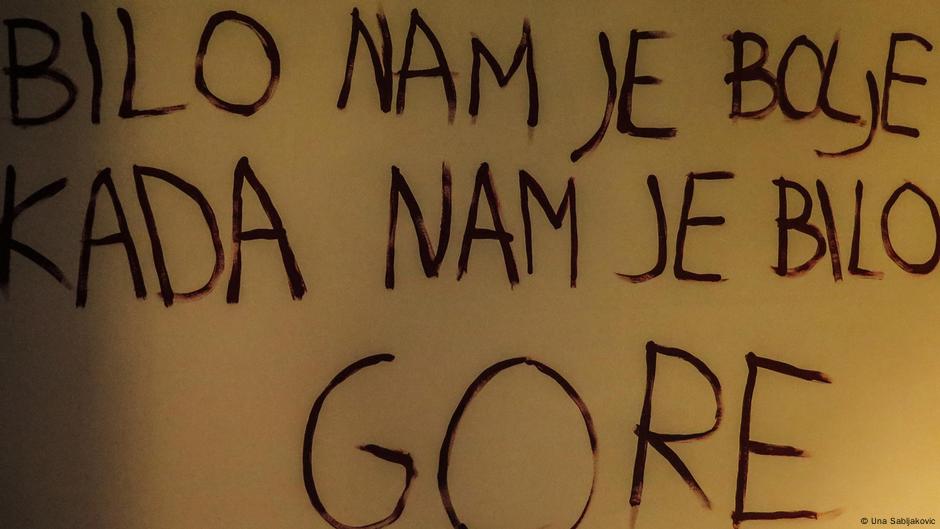 BILO NAM JE BOLJE
KADA NAM JE BILO
GORE
© Una Sabljakovic